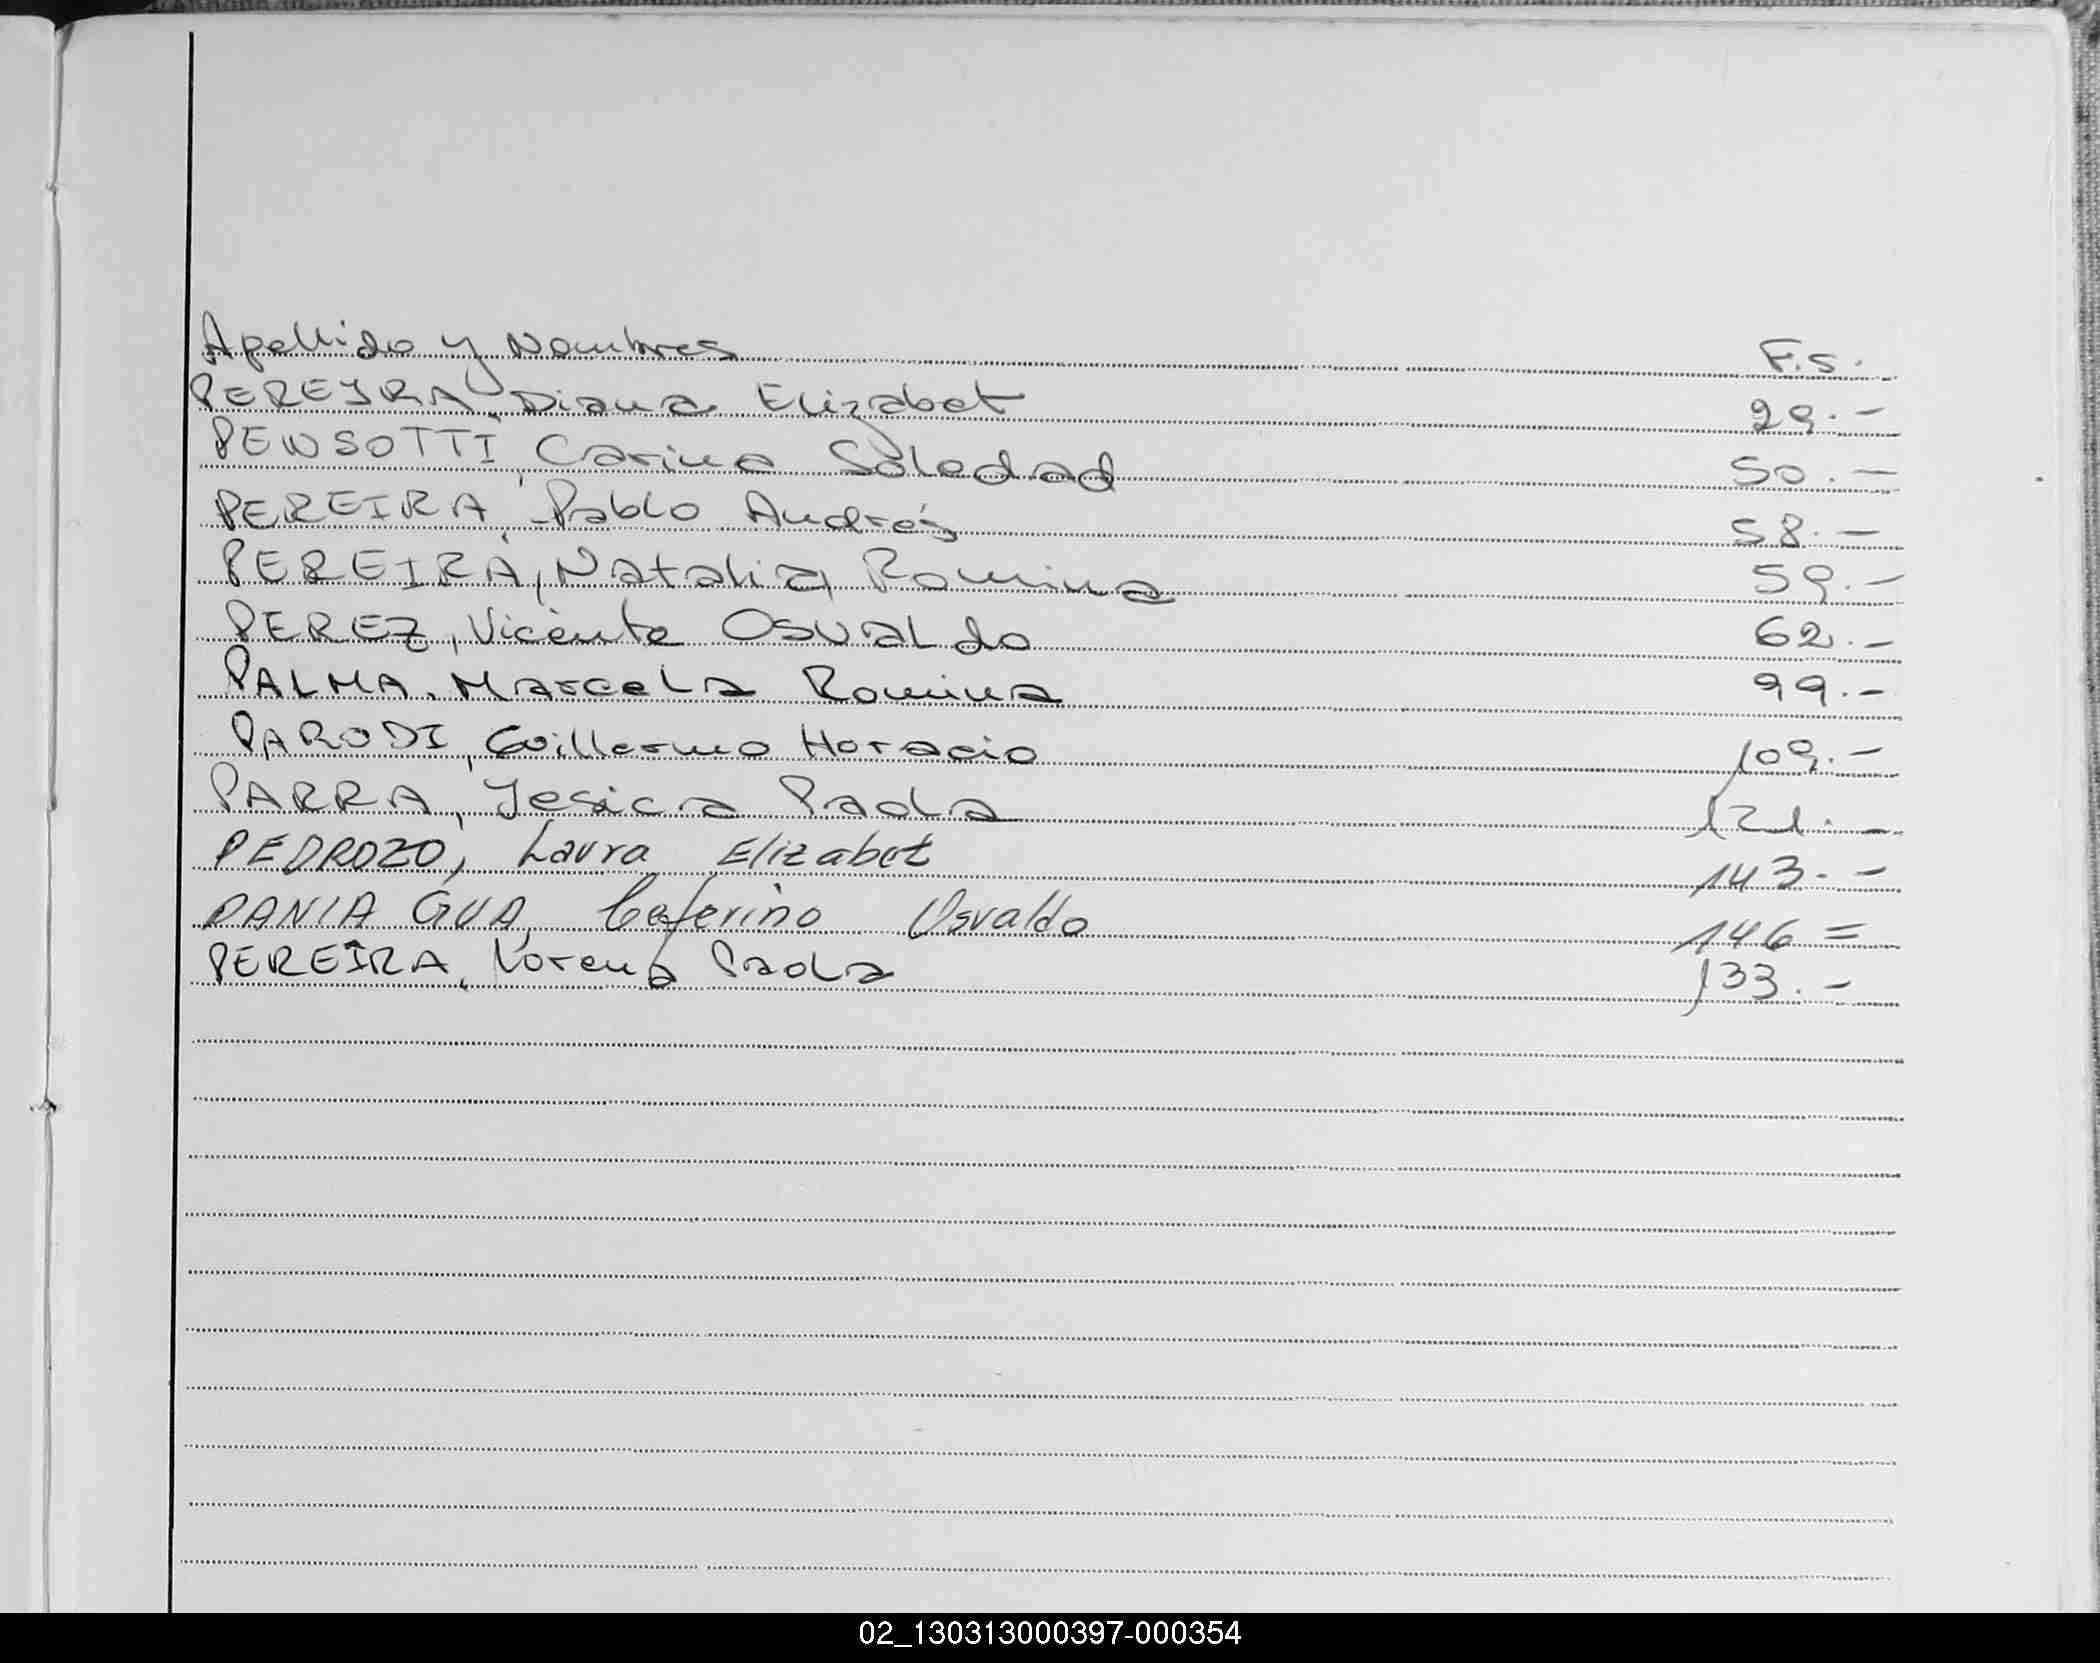 Apellido y Nombres F.s.
PEREYRA, Diana Elizabet 29.-
PENSOTTI, Carina Soledad 50.-
PEREIRA, Pablo Andrés 58.-
PEREIRA, Natalia Romina 59.-
PEREZ, Vicente Osvaldo 62.-
PALMA, Marcela Romina 99.-
PARODI, Guillermo Horacio 109.-
PARRA, Jesica Paola 121.-
PEDROZO, Laura Elizabet 143.-
PANIAGUA, Ceferino Osvaldo 146=
PEREIRA, Lorena Paola 133.-
02_130313000397-000354